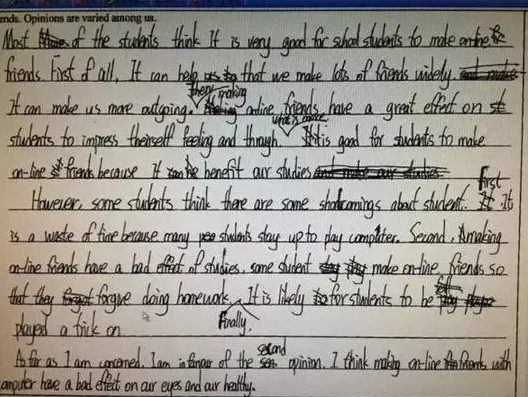 ends. Opinions are varied among us.
Most of the students think It is very good for school students to make on-line
friends. First of all, It can help us that we make lots of friends widely.
then making
It can make us more outgoing. on-line friends have a great effect on
what's more
students to impress theirself feeling and through. It is good for students to make
on-line friends because It can be benefit our studies
First
However, some students think there are some shortcomings about student. It
is a waste of time because many students stay up to play computer. Second, making
on-line friends have a bad effect of studies. some student make on-line friends so
that they forgive doing homework. It is likely for students to be
played a trick on Finally.
second
As far as I am concerned, I am in favour of the opinion. I think making on-line friends with
computer have a bad effect on our eyes and our healthy.